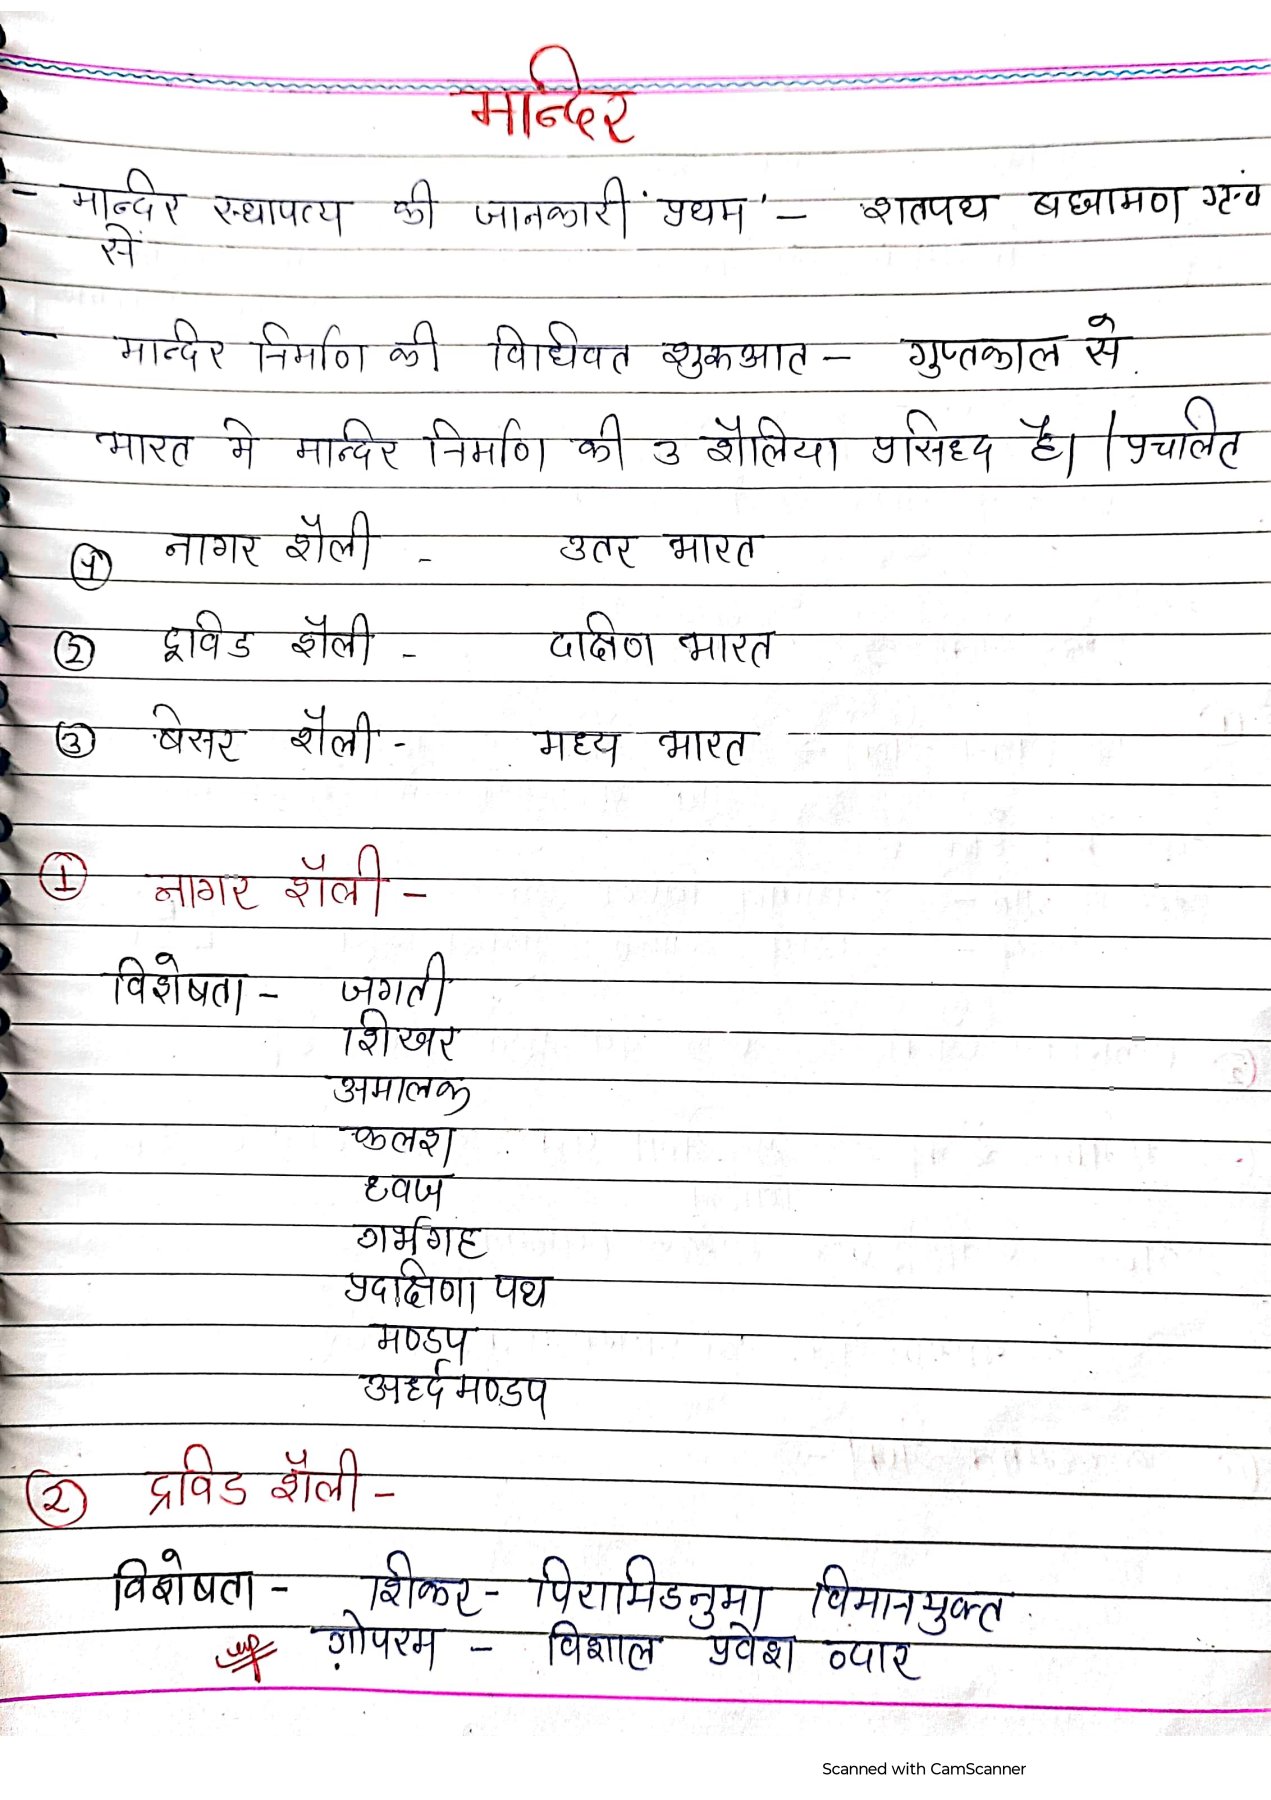 मन्दिर
- मन्दिर स्थापत्य की जानकारी 'प्रथम' - शतपथ बखामण ग्रन्थ
से
- मन्दिर निर्माण की विधिवत शुरुआत - गुप्तकाल से.
भारत मे मन्दिर निर्माण की 3 शैलिया प्रसिध्द है। / प्रचलित
① नागर शैली - उतर भारत
② द्रविड शैली - दक्षिण भारत
③ बेसर शैली - मध्य भारत
① नागर शैली -
विशेषता - जगती
शिखर
अमालक
कलश
ध्वज
गर्भगह
प्रदक्षिणा पथ
मण्डप
अर्ध्दमण्डप
② द्रविड शैली -
विशेषता - शिकर - पिरामिडनुमा विमानयुक्त
imp गोपरम - विशाल प्रवेश व्दार
Scanned with CamScanner